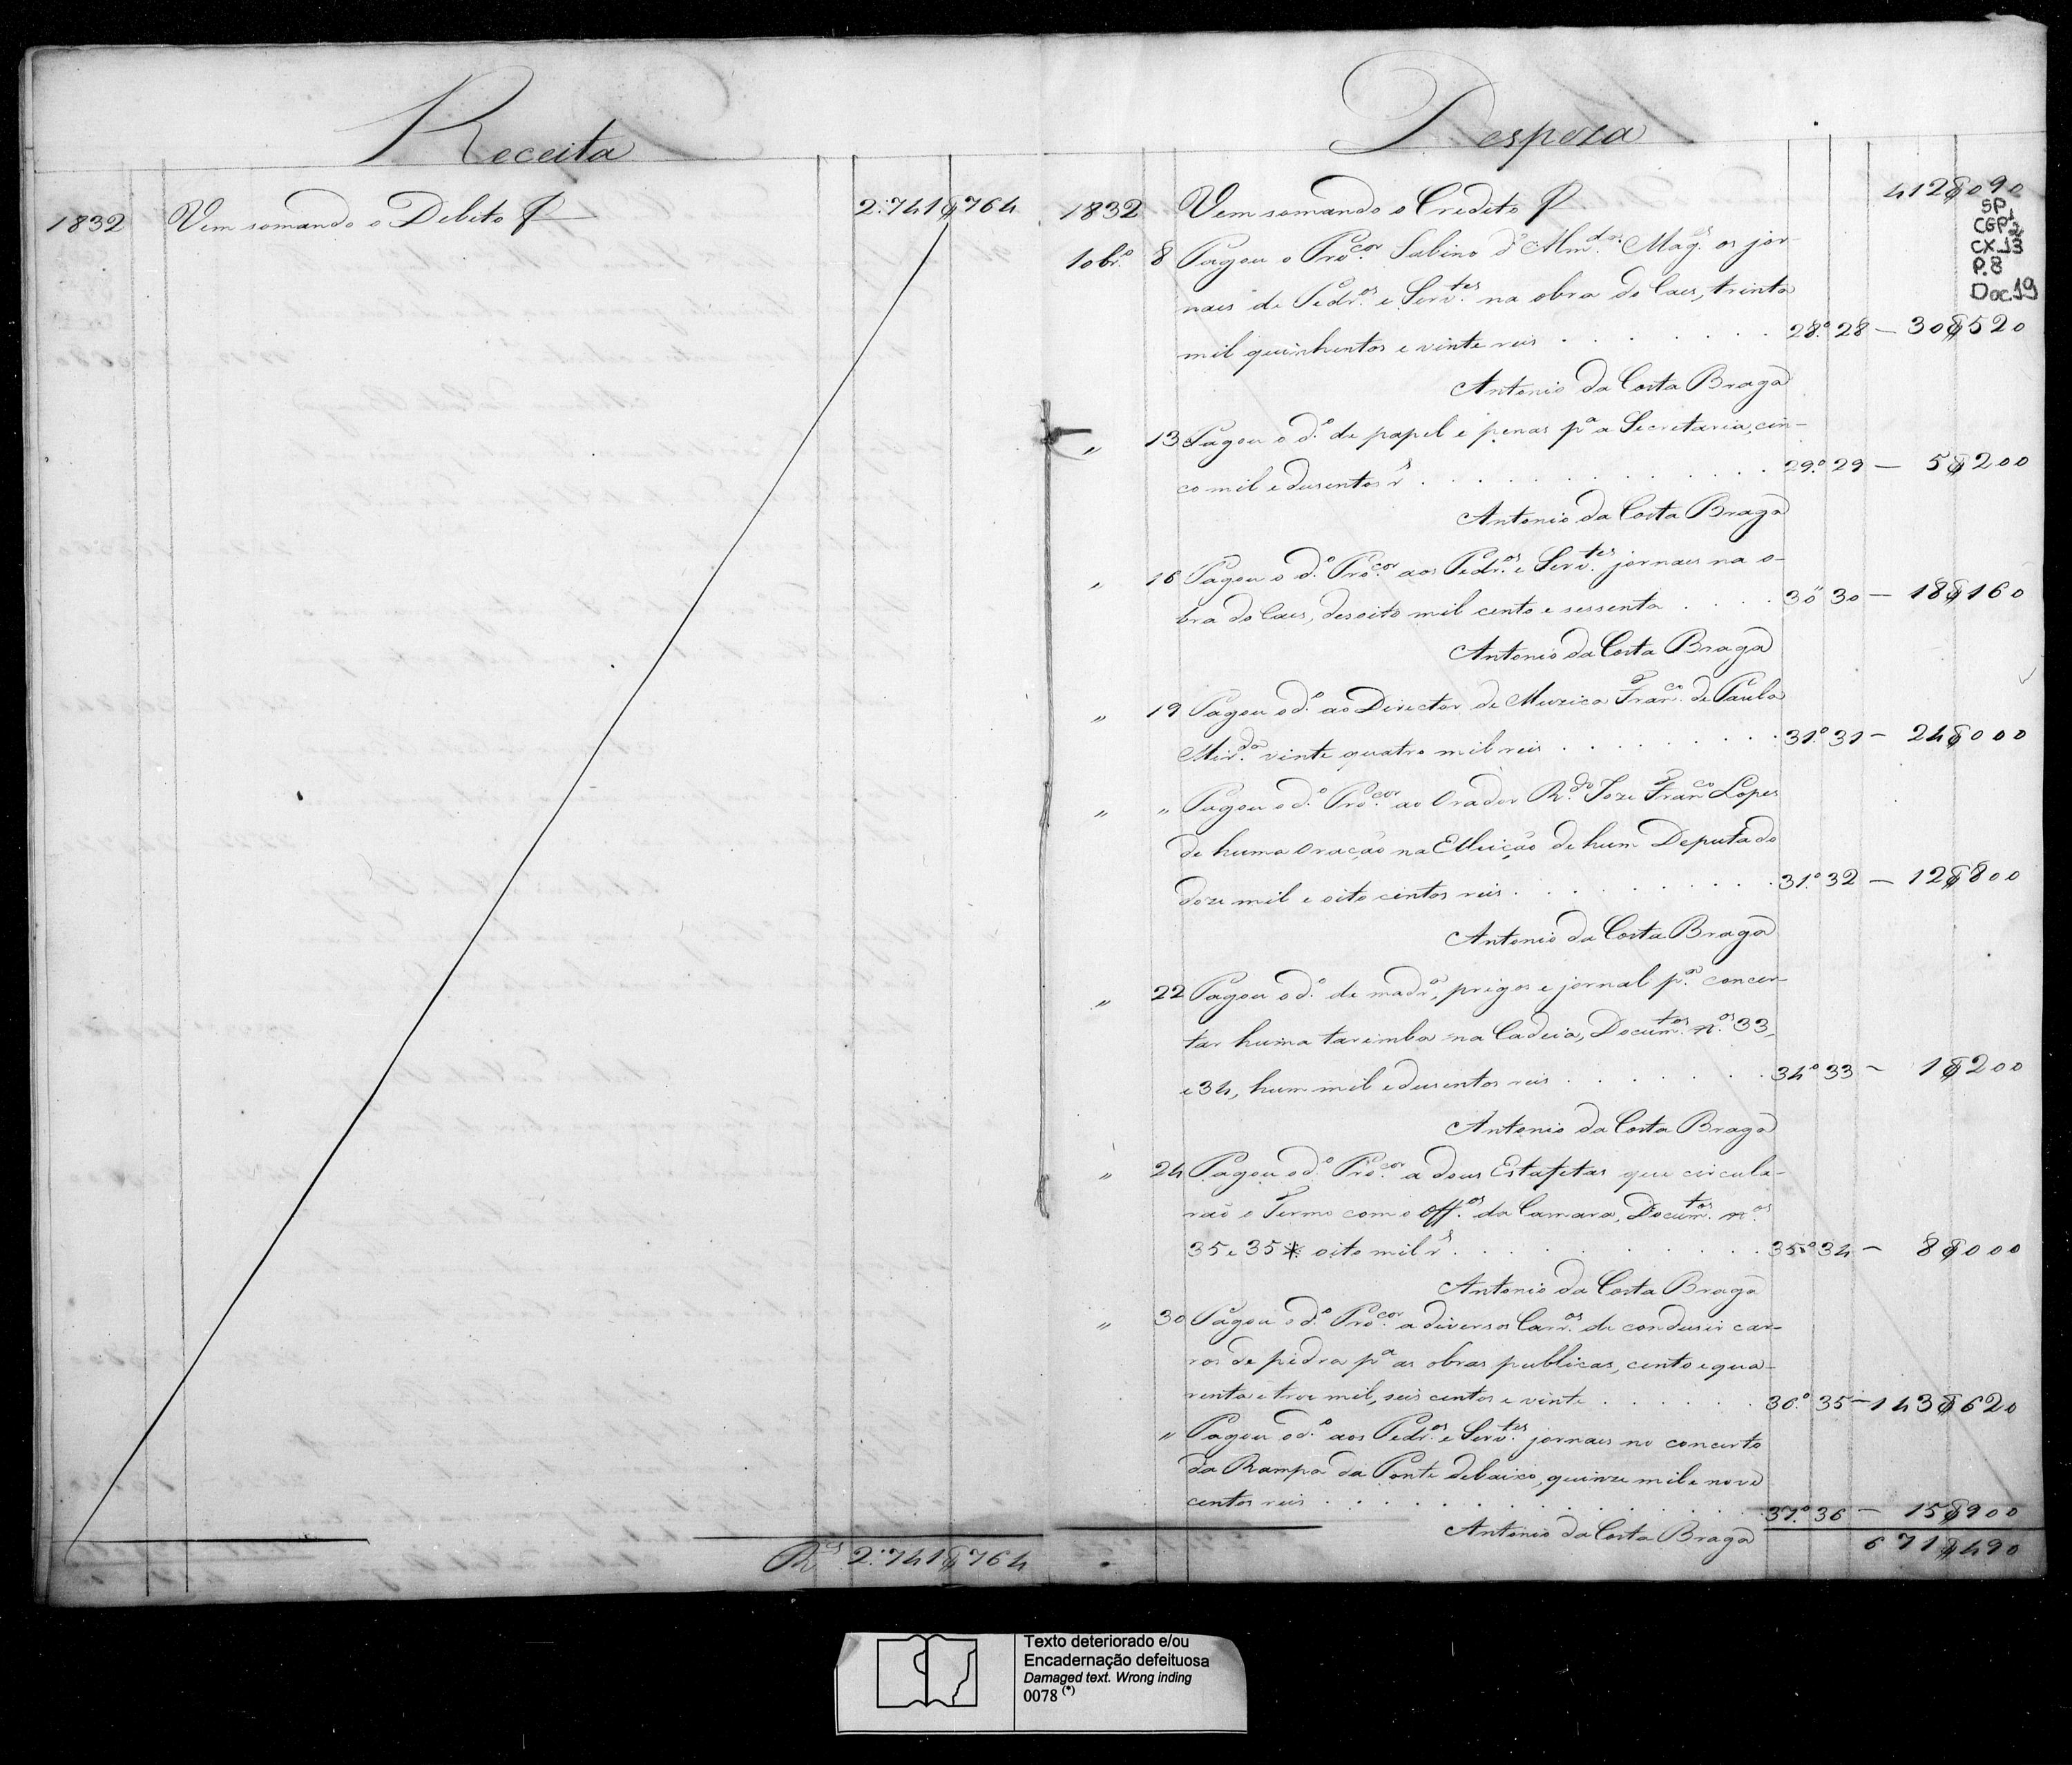 Receita
1832 Vem somando o Debito 2:741$764
Rs 2:741$764
Despeza
1832 Vem somando o Credito 412$090
SP
CGP1
CX.13
P.8
Doc.19
10br.o 8 Pagou o Pro.cor Sabino d' Alm.da Mag.es os jor-
naes de Pedr.os e Serv.tes na obra do Caes, trinta
mil quinhentos e vinte reis . . . . . . 28.o 28 — 30$520
Antonio da Costa Braga
" 13 Pagou o d.o de papel e penas p.a a Secretaria, cin-
co mil e dusentos rs . . . . . . 29.o 29 — 5$200
Antonio da Costa Braga
" 16 Pagou o d.o Pro.cor aos Pedr.os e Serv.tes jornaes na o-
bra do Caes, desoito mil cento e sessenta . . . . 30.o 30 — 18$160
Antonio da Costa Braga
" 19 Pagou o d.o ao Director de Muzica Fran.co de Paula
Mir.da vinte quatro mil reis . . . . . . 31.o 31 — 24$000
" " Pagou o d.o Pro.cor ao Orador R.do Joze Fran.co Lopes
de huma oração na Elleição de hum Deputado
doze mil e oito centos reis . . . . . . 31.o 32 — 12$800
Antonio da Costa Braga
" 22 Pagou o d.o de madr.a, prigos e jornal p.a concer-
tar huma tarimba na Cadeia, Docum.tos n.os 33,
e 34, hum mil e dusentos reis . . . . . . 34.o 33 — 1$200
Antonio da Costa Braga
" 24 Pagou o d.o Pro.cor a dous Estafetas que circula-
rão o Termo com o Off.os da Camara, Docum.tos n.os
35 e 35* oito mil rs . . . . . . 35.o 34 — 8$000
Antonio da Costa Braga
" 30 Pagou o d.o Pro.cor a diversos Carr.os de condusir car-
ros de pedra p.a as obras publicas, cento e qua-
renta e tres mil, seis centos e vinte . . . . . . 36.o 35 — 143$620
" Pagou o d.o aos Pedr.os e Serv.tes jornaes no concerto
da Rampa da Ponte debaixo, quinze mil e nove
centos reis . . . . . . 37.o 36 — 15$900
Antonio da Costa Braga 671$490
Texto deteriorado e/ou
Encadernação defeituosa
Damaged text. Wrong inding
0078 (*)